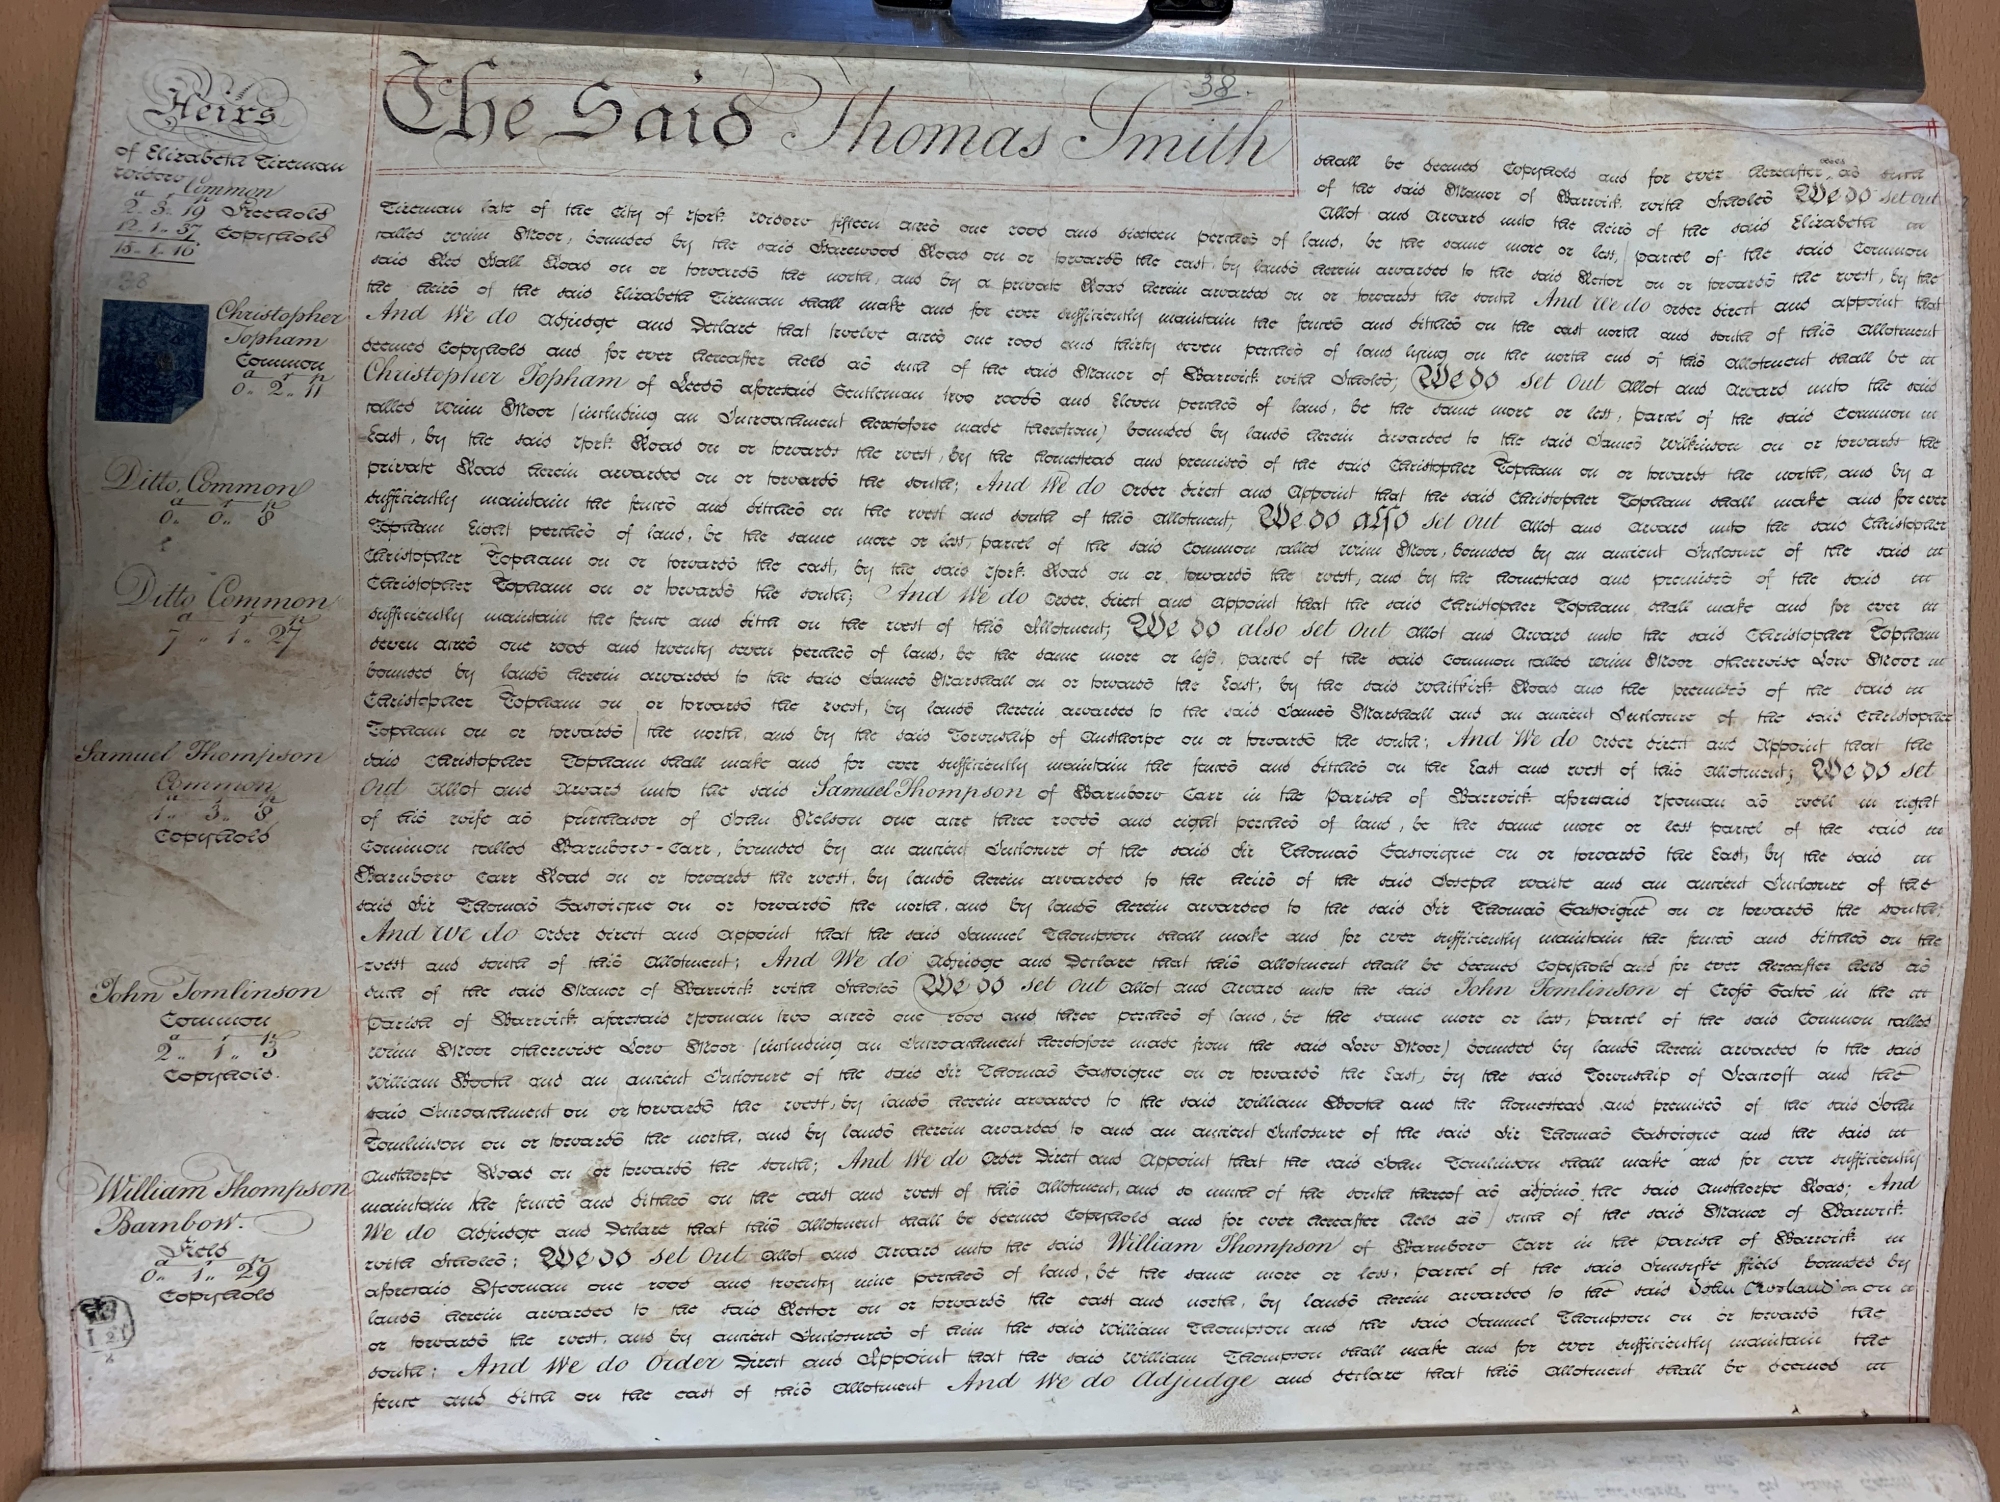 38.
Heirs
of Elizabeth Tireman
widow Common
a r p
2.. 3.. 19 Freehold
12.. 1.. 37 Copyhold
15.. 1.. 16
38
Christopher
Topham
Common
a r p
0.. 2.. 11
Ditto Common
a r p
0.. 0.. 8
Ditto Common
a r p
7.. 1.. 27
Samuel Thompson
Common
a r p
1.. 3.. 8
Copyhold
John Tomlinson
Common
a r p
2.. 1.. 3
Copyhold.
William Thompson
Barnbow.
Field
a r p
0.. 1.. 29
Copyhold
The Said Thomas Smith
shall be deemed Copyhold and for ever hereafter as such
of the said Manor of Barwick with Scholes We do set out
Allot and Award unto the heirs of the said Elizabeth
Tireman late of the City of York widow fifteen acres one rood and sixteen perches of land, be the same more or less, parcel of the said Common
called Winn Moor, bounded by the said Harewood Road on or towards the east, by lands herein awarded to the said Rector on or towards the west, by the
said Red Hall Road on or towards the north, and by a private Road herein awarded on or towards the south And We do order direct and appoint that
the heirs of the said Elizabeth Tireman shall make and for ever sufficiently maintain the fences and ditches on the east north and south of this Allotment
And We do Adjudge and Declare that twelve acres one rood and thirty seven perches of land lying on the north end of this Allotment shall be
deemed Copyhold and for ever hereafter held as such of the said Manor of Barwick with Scholes; We do set out Allot and Award unto the said
Christopher Topham of Leeds aforesaid Gentleman two roods and Eleven perches of land, be the same more or less, parcel of the said Common
called Winn Moor (including an Incroachment heretofore made therefrom) bounded by lands herein awarded to the said James Wilkinson on or towards the
East, by the said York Road on or towards the west, by the homestead and premises of the said Christopher Topham on or towards the north, and by a
private Road herein awarded on or towards the south; And We do Order direct and Appoint that the said Christopher Topham shall make and for ever
sufficiently maintain the fences and ditches on the west and south of this Allotment; We do also set out Allot and Award unto the said Christopher
Topham Eight perches of land, be the same more or less, parcel of the said Common called Winn Moor, bounded by an ancient Inclosure of the said
Christopher Topham on or towards the east, by the said York Road on or towards the west, and by the homestead and premises of the said
Christopher Topham on or towards the south; And We do Order direct and Appoint that the said Christopher Topham shall make and for ever
sufficiently maintain the fence and ditch on the west of this Allotment; We do also set out Allot and Award unto the said Christopher Topham
seven acres one rood and twenty seven perches of land, be the same more or less, parcel of the said Common called Winn Moor otherwise Low Moor
bounded by lands herein awarded to the said James Marshall on or towards the East, by the said Whitkirk Road and the premises of the said
Christopher Topham on or towards the west, by lands herein awarded to the said James Marshall and an ancient Inclosure of the said Christopher
Topham on or towards the north, and by the said Township of Austhorpe on or towards the south; And We do Order direct and Appoint that the
said Christopher Topham shall make and for ever sufficiently maintain the fences and ditches on the East and west of this Allotment; We do set
Out Allot and Award unto the said Samuel Thompson of Barnbow Carr in the Parish of Barwick aforesaid Yeoman as well in right
of his wife as purchasor of John Nelson one acre three roods and eight perches of land, be the same more or less parcel of the said
Common called Barnbow-Carr, bounded by an ancient Inclosure of the said Sir Thomas Gascoigne on or towards the East, by the said
Barnbow Carr Road on or towards the west, by lands herein awarded to the heirs of the said Joseph Waite and an ancient Inclosure of the
said Sir Thomas Gascoigne on or towards the north, and by lands herein awarded to the said Sir Thomas Gascoigne on or towards the south;
And We do Order direct and Appoint that the said Samuel Thompson shall make and for ever sufficiently maintain the fences and ditches on the
west and south of this Allotment; And We do Adjudge and Declare that this Allotment shall be deemed Copyhold and for ever hereafter held as
such of the said Manor of Barwick with Scholes We do set out Allot and Award unto the said John Tomlinson of Cross Gates in the
Parish of Barwick aforesaid Yeoman two acres one rood and three perches of land, be the same more or less, parcel of the said Common called
Winn Moor otherwise Low Moor (including an Incroachment heretofore made from the said Low Moor) bounded by lands herein awarded to the said
William Booth and an ancient Inclosure of the said Sir Thomas Gascoigne on or towards the East, by the said Township of Seacroft and the
said Incroachment on or towards the west, by lands herein awarded to the said William Booth and the homestead and premises of the said John
Tomlinson on or towards the north, and by lands herein awarded to and an ancient Inclosure of the said Sir Thomas Gascoigne and the said
Austhorpe Road on or towards the south; And We do Order Direct and Appoint that the said John Tomlinson shall make and for ever sufficiently
maintain the fences and ditches on the east and west of this Allotment, and so much of the south thereof as adjoins the said Austhorpe Road; And
We do Adjudge and Declare that this Allotment shall be deemed Copyhold and for ever hereafter held as such of the said Manor of Barwick
with Scholes; We do set out Allot and Award unto the said William Thompson of Barnbow Carr in the parish of Barwick
aforesaid Yeoman one rood and twenty nine perches of land, be the same more or less, parcel of the said ffield bounded by
lands herein awarded to the said Rector on or towards the east and north, by lands herein awarded to the said John on
or towards the west, and by ancient Inclosures of him the said William Thompson and the said Samuel Thompson on or towards the
south; And We do Order Direct and Appoint that the said William Thompson shall make and for ever sufficiently maintain the
fence and ditch on the east of this Allotment And We do Adjudge and declare that this Allotment shall be deemed